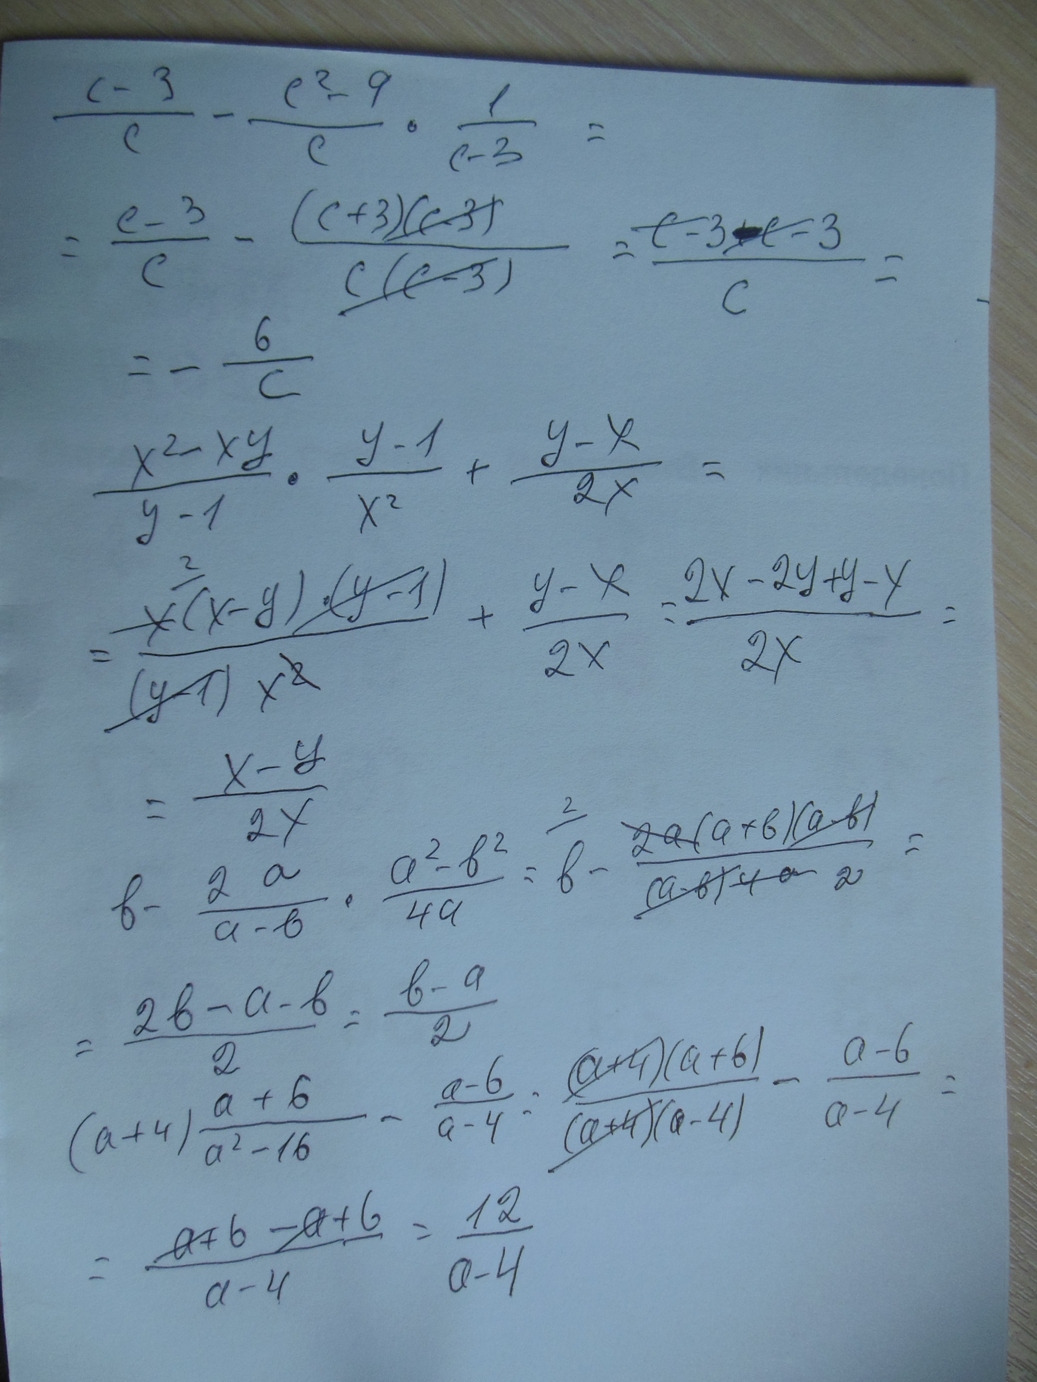 (c-3)/c - (c²-9)/c · 1/(c-3) =
= (c-3)/c - ((c+3)(c-3))/(c(c-3)) = (c-3-c-3)/c =
= - 6/c
(x²-xy)/(y-1) · (y-1)/x² + (y-x)/(2x) =
= (x(x-y)·(y-1))/((y-1) x²) + (y-x)/(2x) = (2x-2y+y-x)/(2x) =
= (x-y)/(2x)
b - (2a)/(a-b) · (a²-b²)/(4a) = b - (2a(a+b)(a-b))/((a-b)4a 2) =
= (2b-a-b)/2 = (b-a)/2
(a+4) (a+6)/(a²-16) - (a-6)/(a-4) = ((a+4)(a+6))/((a+4)(a-4)) - (a-6)/(a-4) =
= (a+6-a+6)/(a-4) = 12/(a-4)